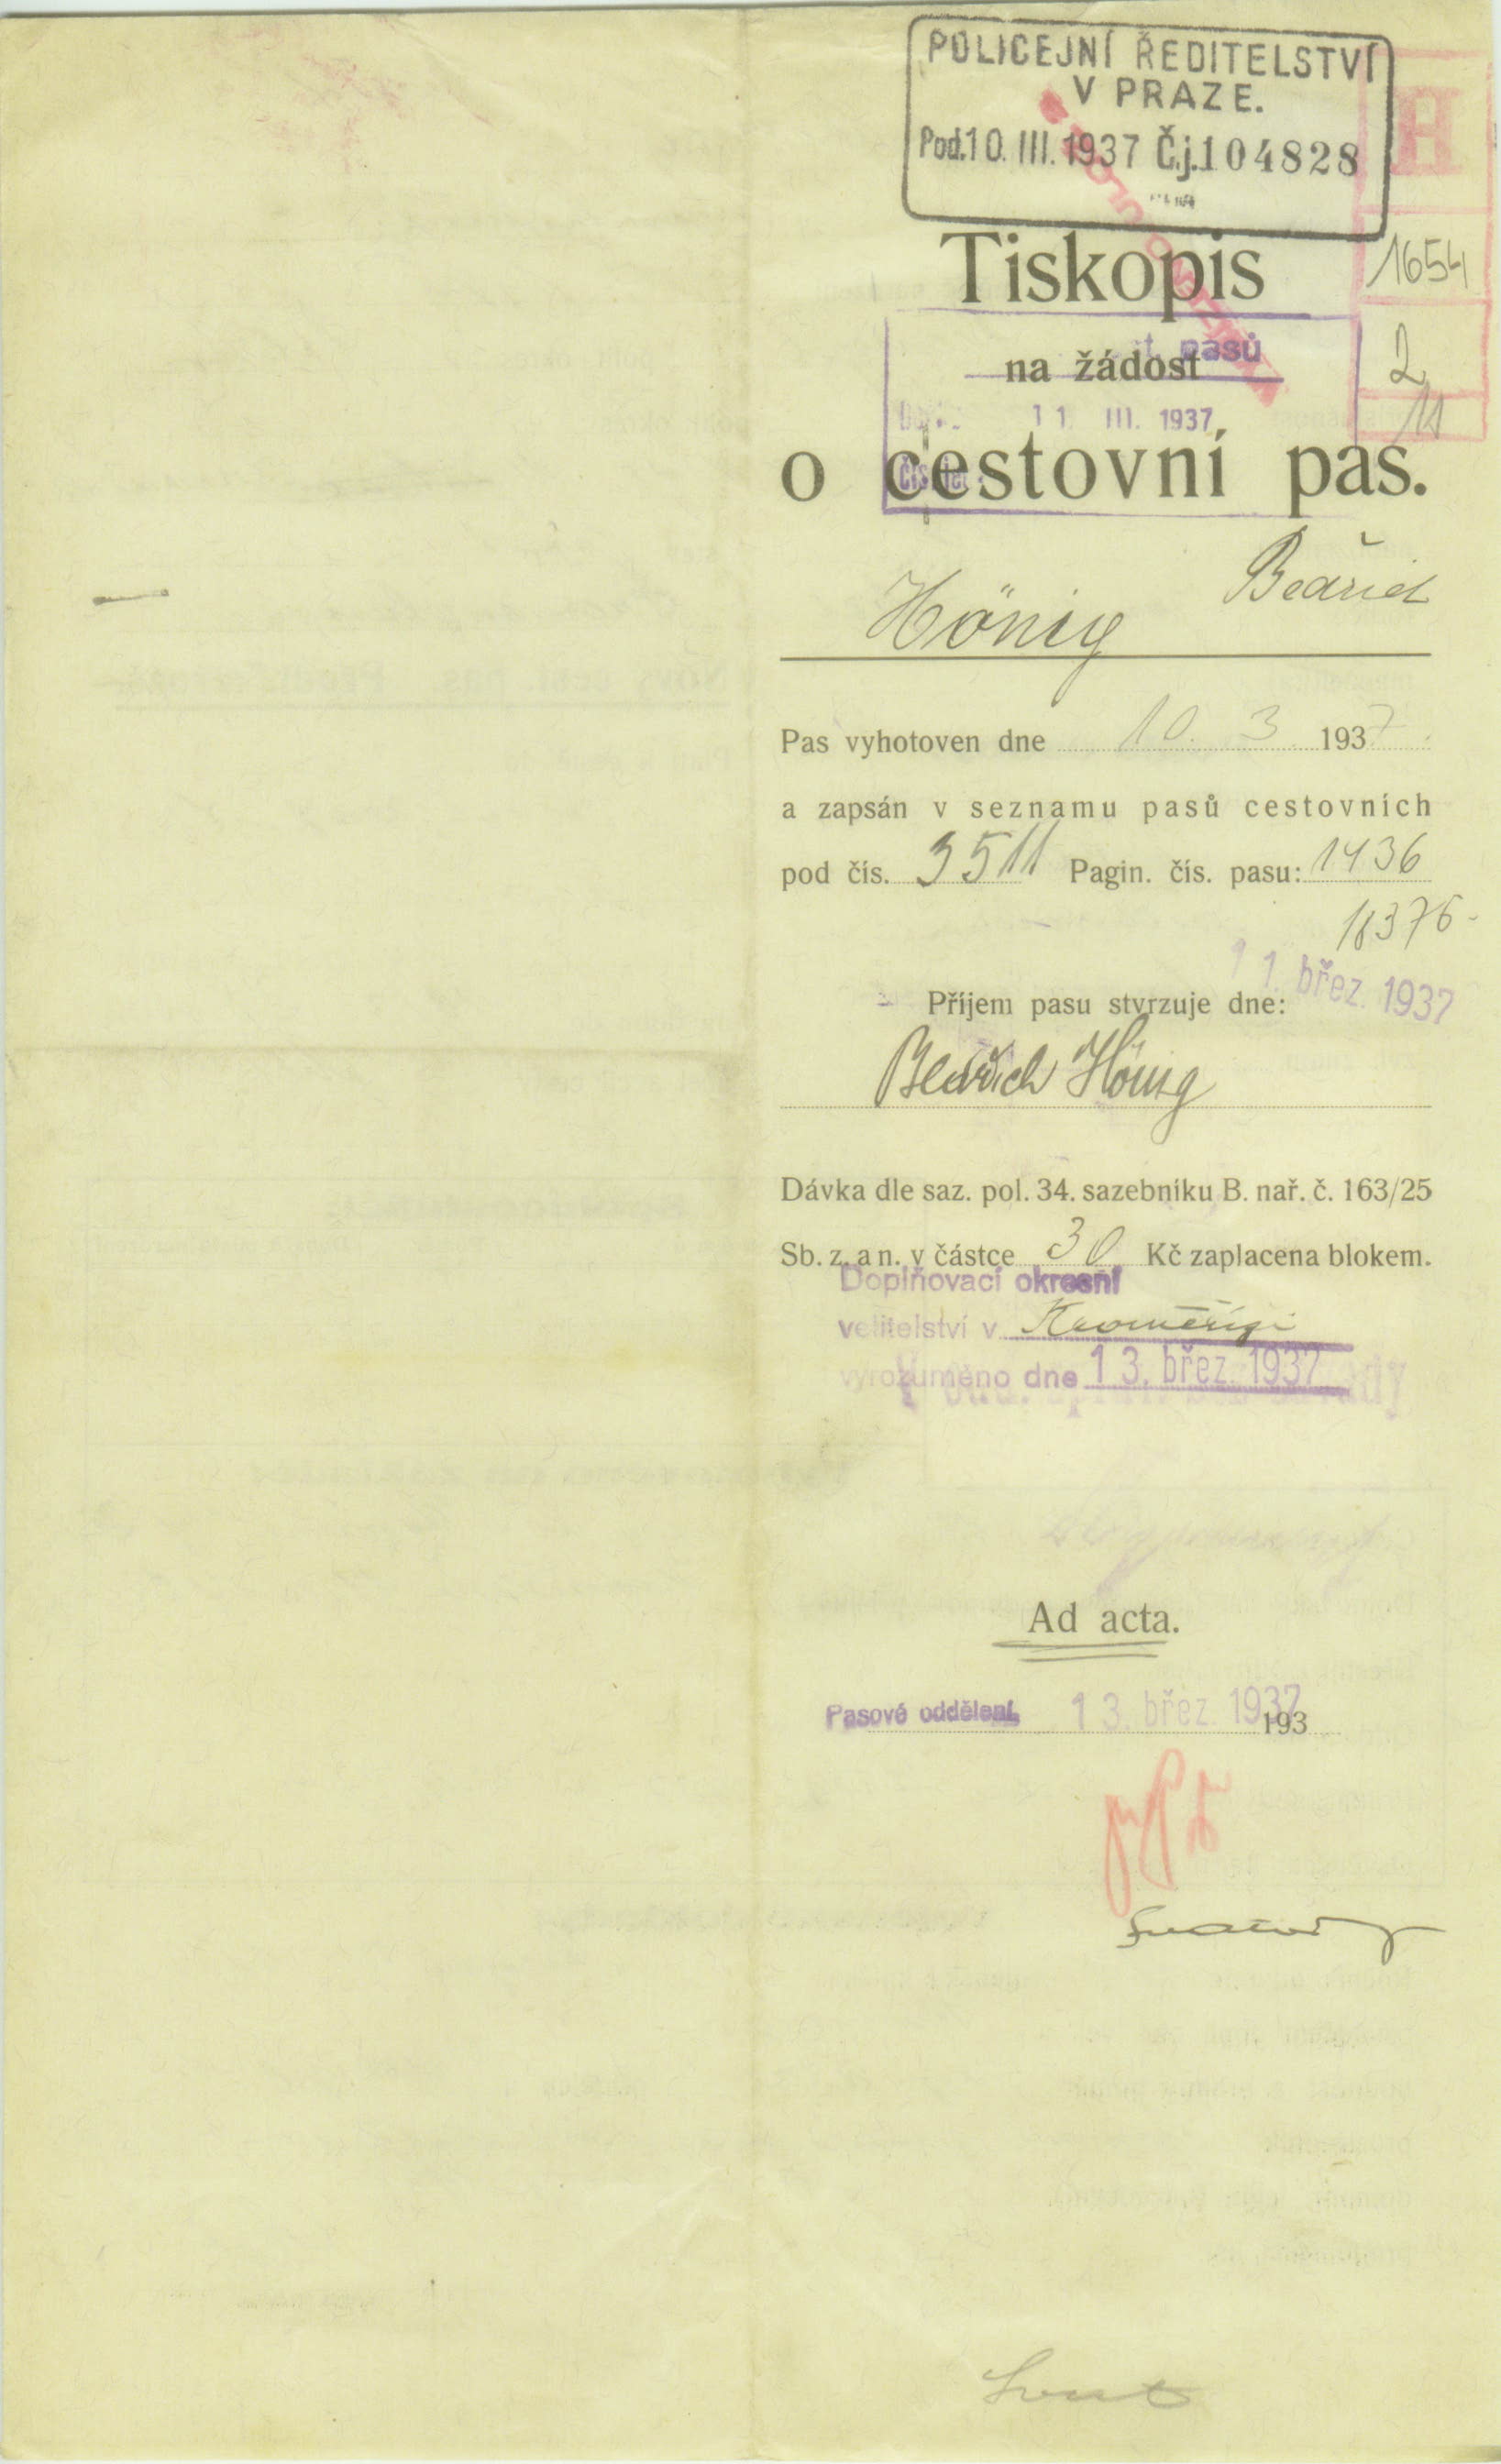 POLICEJNÍ ŘEDITELSTVÍ
V PRAZE.
Pod. 10. III. 1937 Č.j. 104828
H
1654
2
11
Tiskopis
na žádost
pasů
11. III. 1937
o cestovní pas.
Hönig Bedřich
Pas vyhotoven dne 10. 3. 1937.
a zapsán v seznamu pasů cestovních
pod čís. 3511 Pagin. čís. pasu: 1436
18376-
Příjem pasu stvrzuje dne: 11. břez. 1937
Bedřich Hönig
Dávka dle saz. pol. 34. sazebníku B. nař. č. 163/25
Sb. z. a n. v částce 30 Kč zaplacena blokem.
Doplňovací okresní
velitelství v Kroměříži
vyrozuměno dne 13. břez. 1937
Ad acta.
Pasové oddělení 13. břez. 1937
193